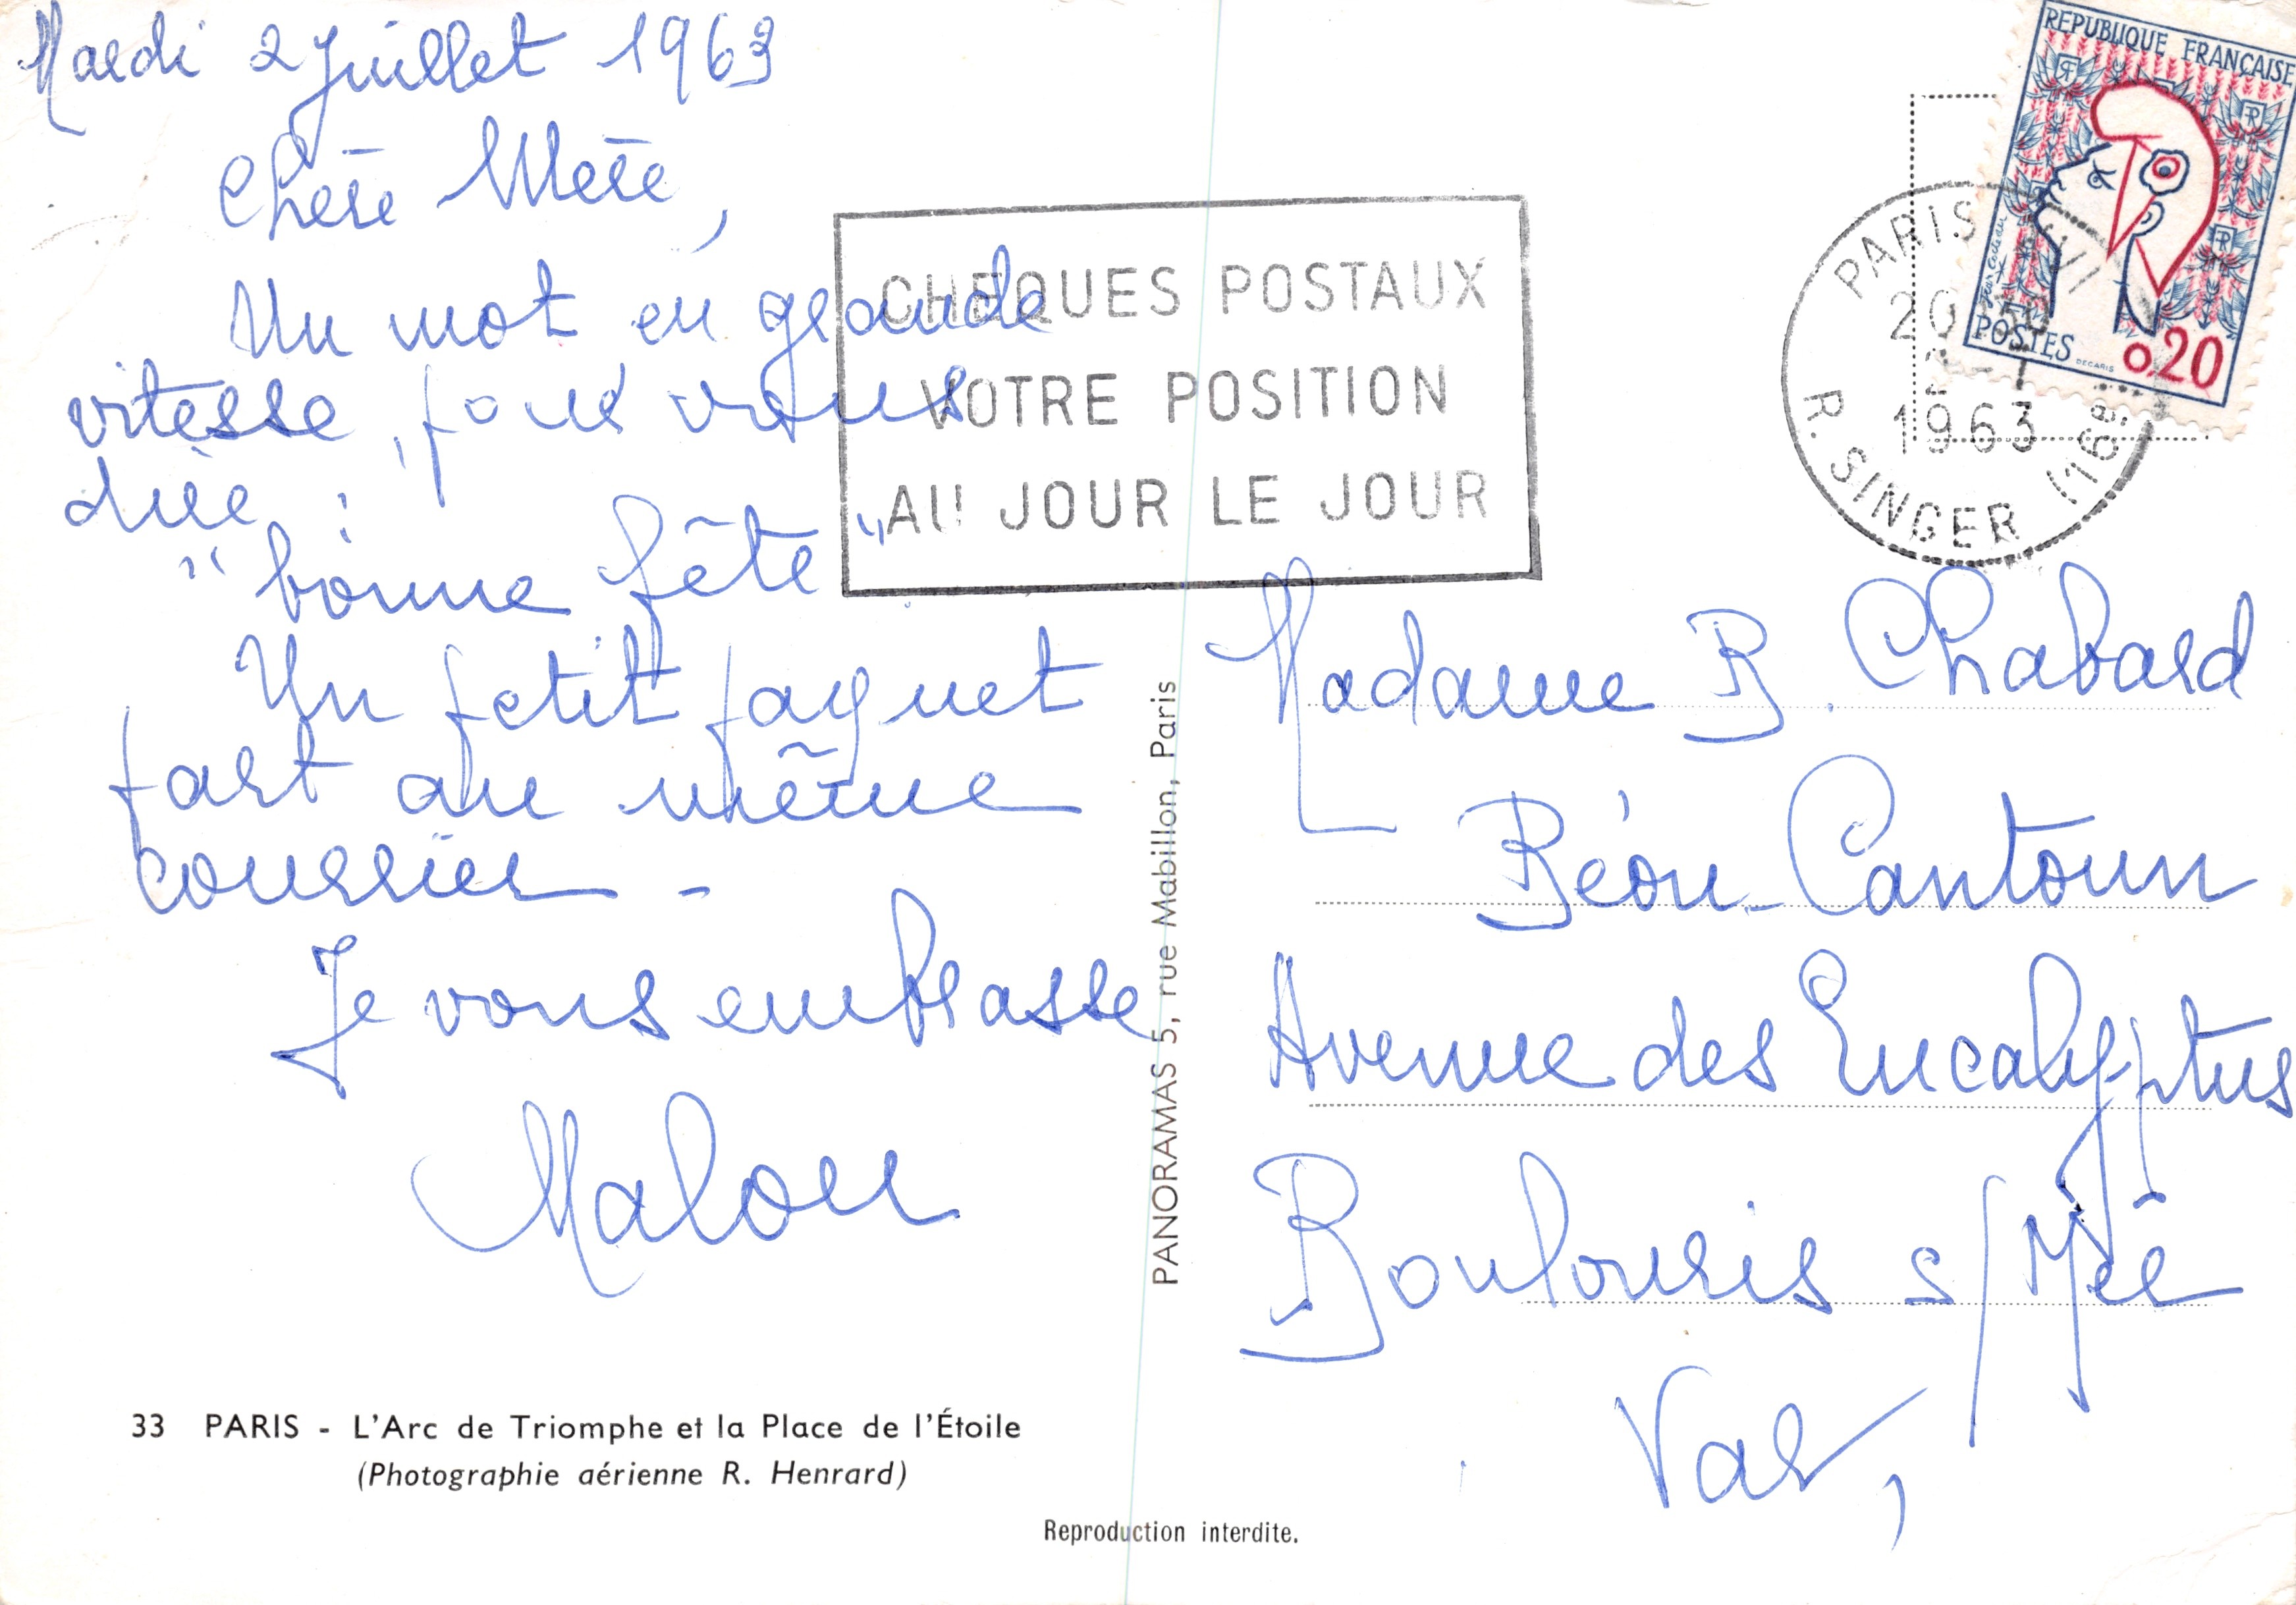 Mardi 2 Juillet 1963
Chère Mère,
Un mot en grande
vitesse, pour vous
dire :
"bonne fête"
Un petit paquet
part au même
courrier -
Je vous embrasse
Malou
33 PARIS - L'Arc de Triomphe et la Place de l'Étoile
(Photographie aérienne R. Henrard)
Reproduction interdite.
PANORAMAS 5, rue Mabillon, Paris
CHEQUES POSTAUX
VOTRE POSITION
AU JOUR LE JOUR
PARIS
1963
R. SINGER
REPUBLIQUE FRANÇAISE
Jean Cocteau
POSTES
DECARIS
0,20
Madame B. Chabard
Béou-Cantoun
Avenue des Eucalyptus
Boulouris s/ Mer
Var,